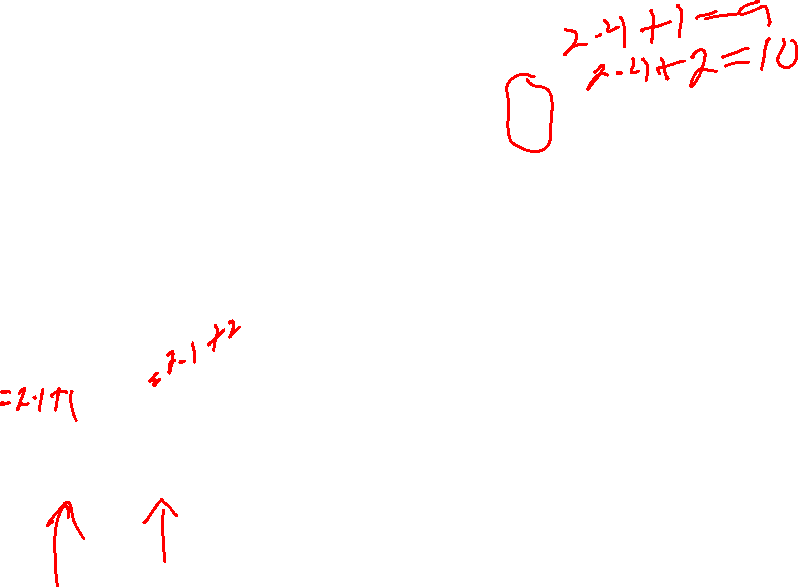 2·4+1=9
2·4+2=10
=2·1+2
=2·1+1